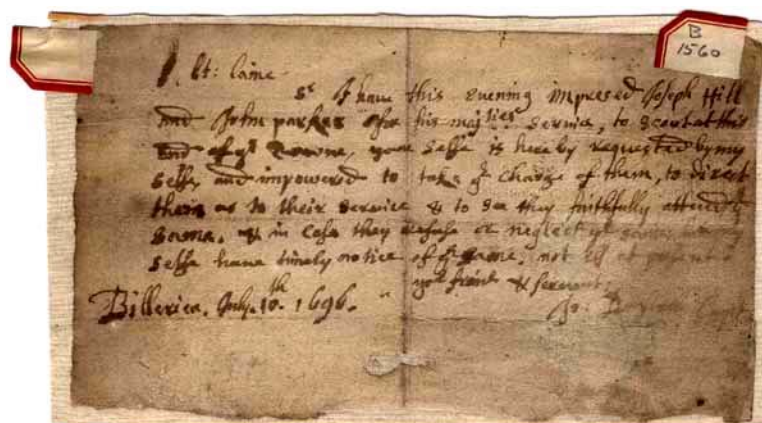 B
1560
Lt: Laine
Sr I haue this Euening impresed Joseph Hill
and John parker for his majties Service, to Scout at this
End of ye Towne, your Selfe is hereby requested by my
Selfe, and impowered to take ye Charge of them, to direct
them as to their Service & to See they faithfully attend ye
Same, & in Case they refuse or neglect ye Same,
Selfe haue timely notice of ye Same, not Els at present
yor friend & Servant
Billerica, July. 10th. 1696.
Jo: